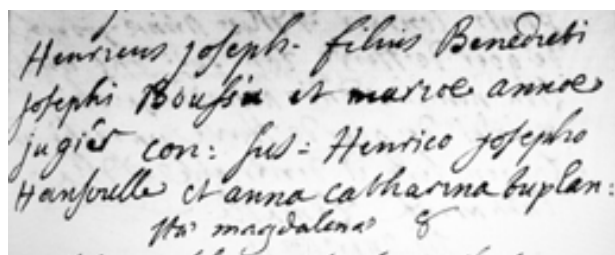 Henricus joseph. filius Benedicti
josephi Boussu et mariae annae
jugier con: sus: Henrico josepho
Hansoulle et anna catharina buplan:
sta magdalena &